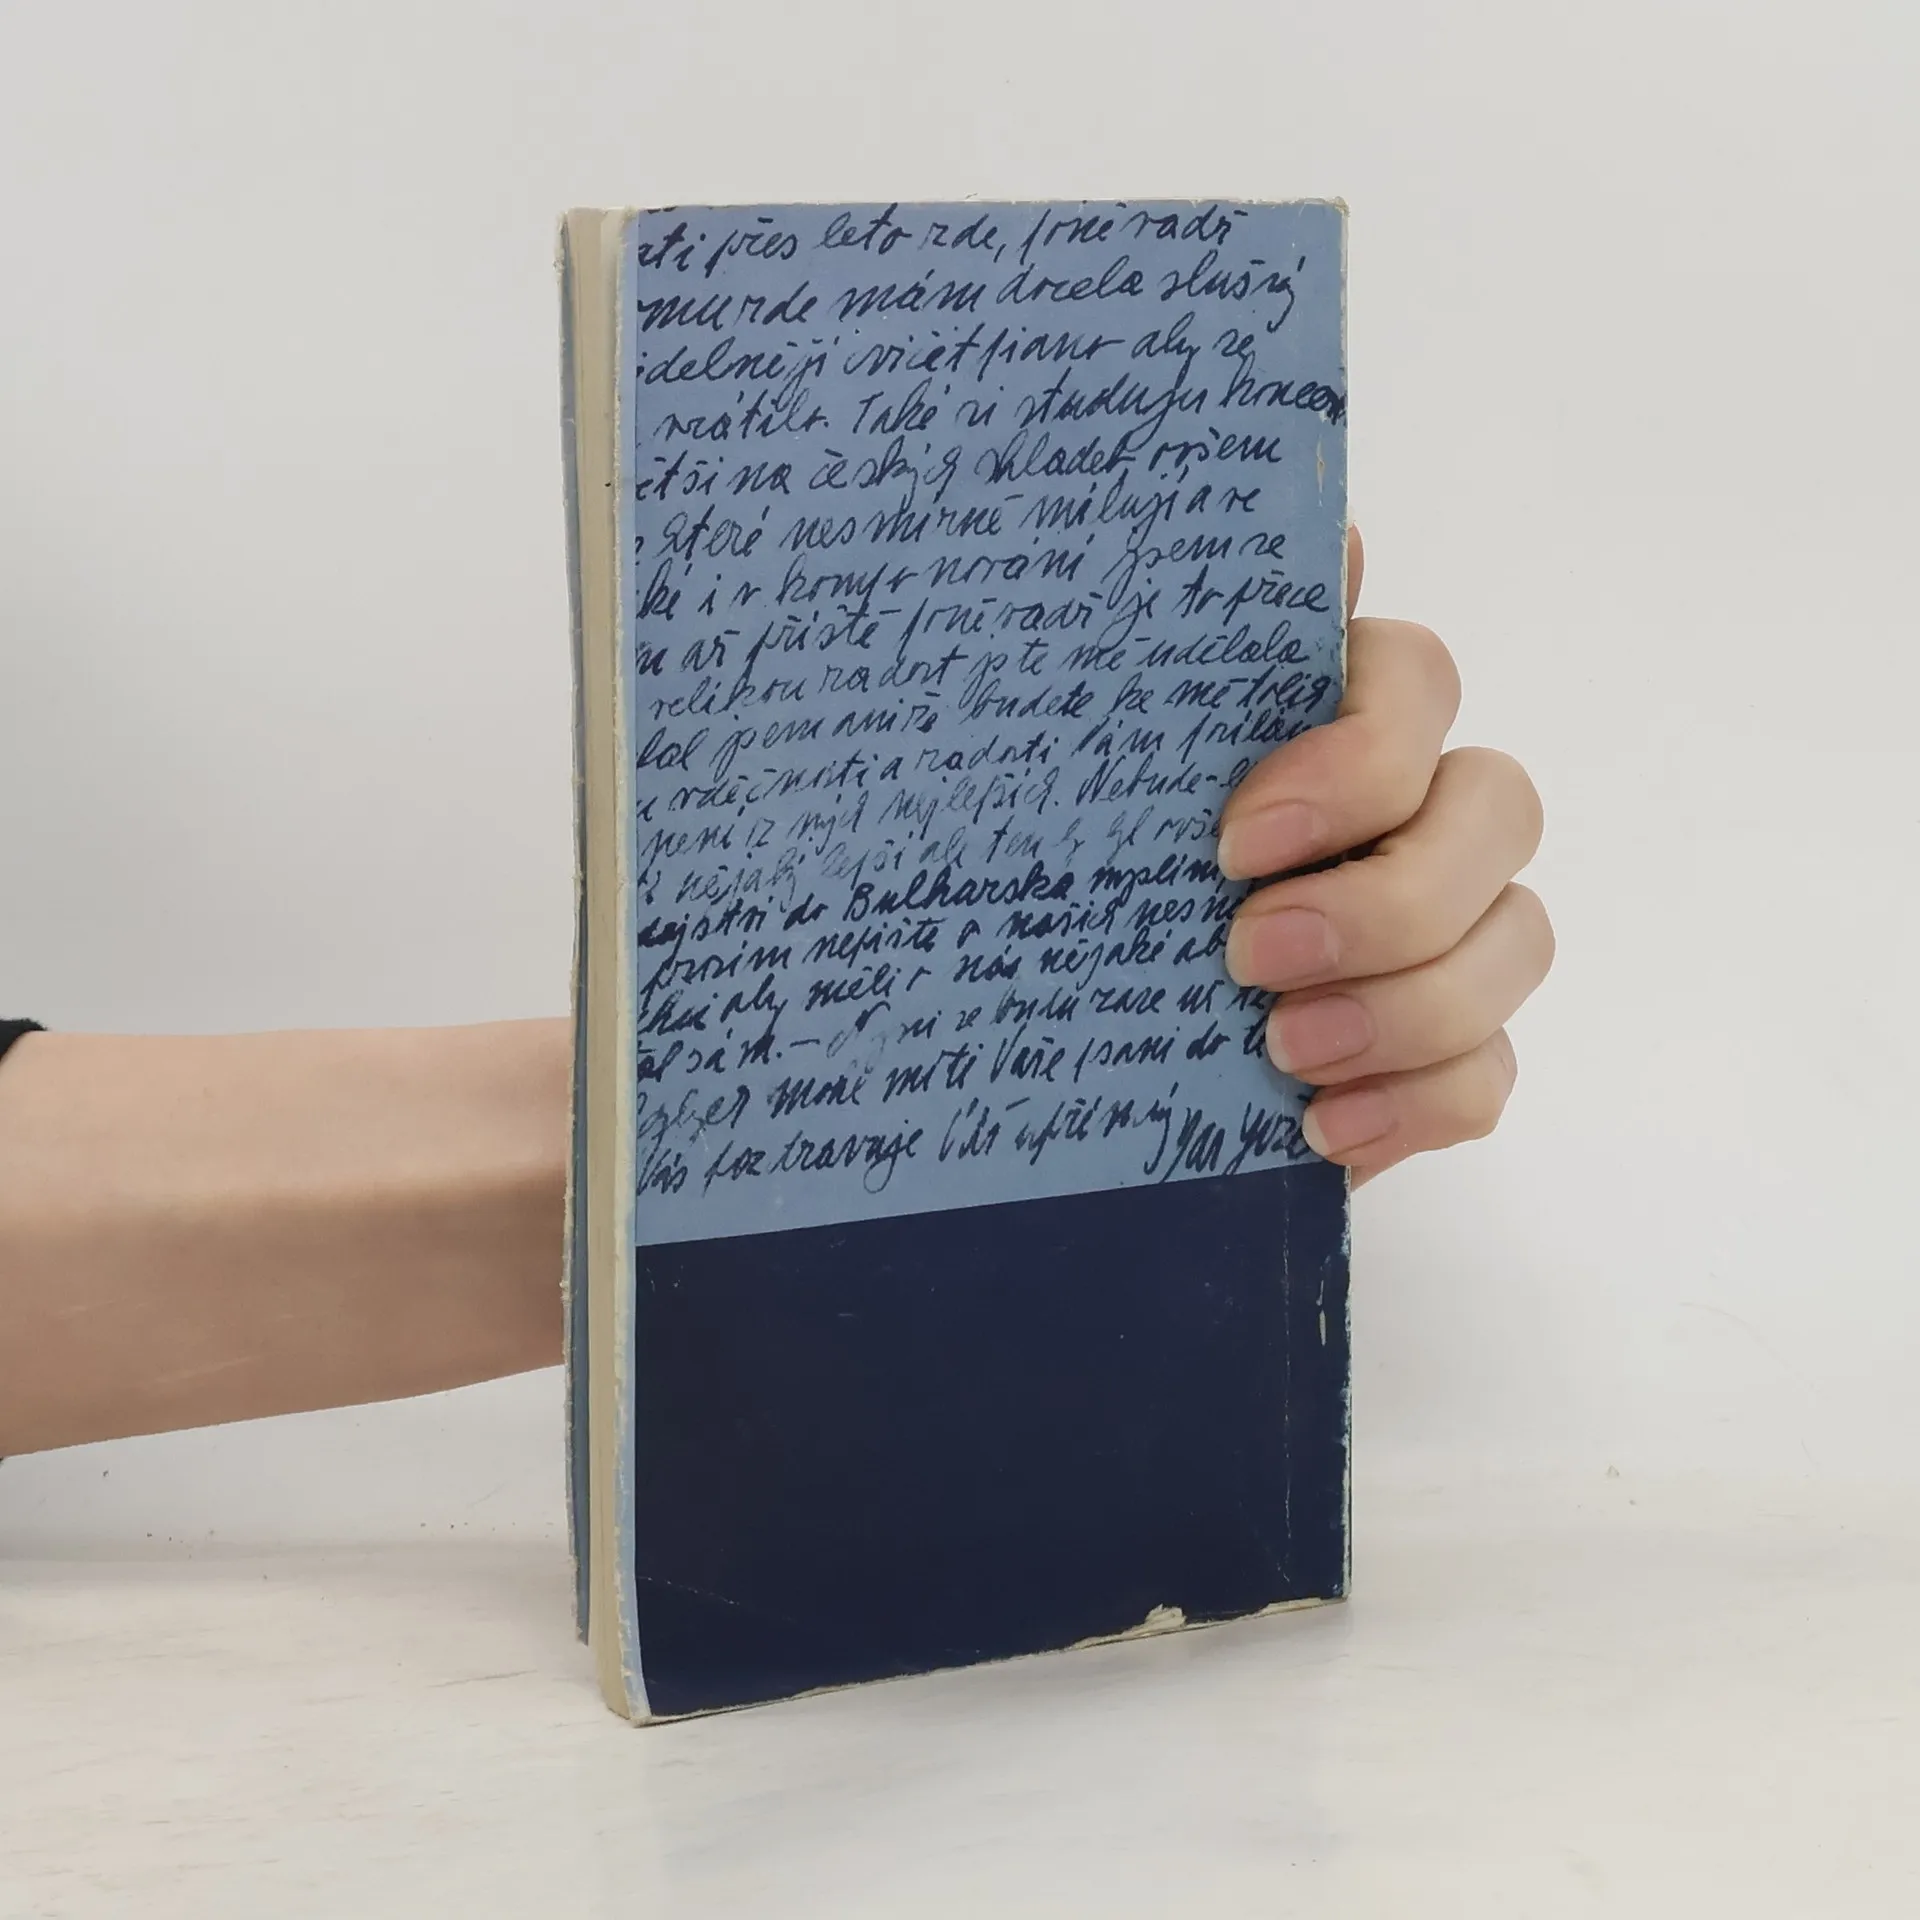 ati přes leto zde, poněvadž
mu zde mám docela slušný
idelněji cvičet piano aby se
vrátilo. Také si studuju koncem
ětšina českých skladeb, ovšem
které nesmírně miluji a ve
ké i v komponování jsem se
m až příště poněvadž je to přece
velikou radost jste mě udělala
lal jsem ani že budete ke mě tolik
u vděčnosti a radosti Vám posílám
není z mých nejlepších. Nebude-l
nějaký lepší ale ten by byl ovše
do Bulharska myslím,
prosím nepište o našich nesná
chci aby měli o nás nějaké ab
sám.— Nyní se budu zase už tě
moné míti Vaše psaní do
Vás pozdravuje Váš upřímný Jan Jože